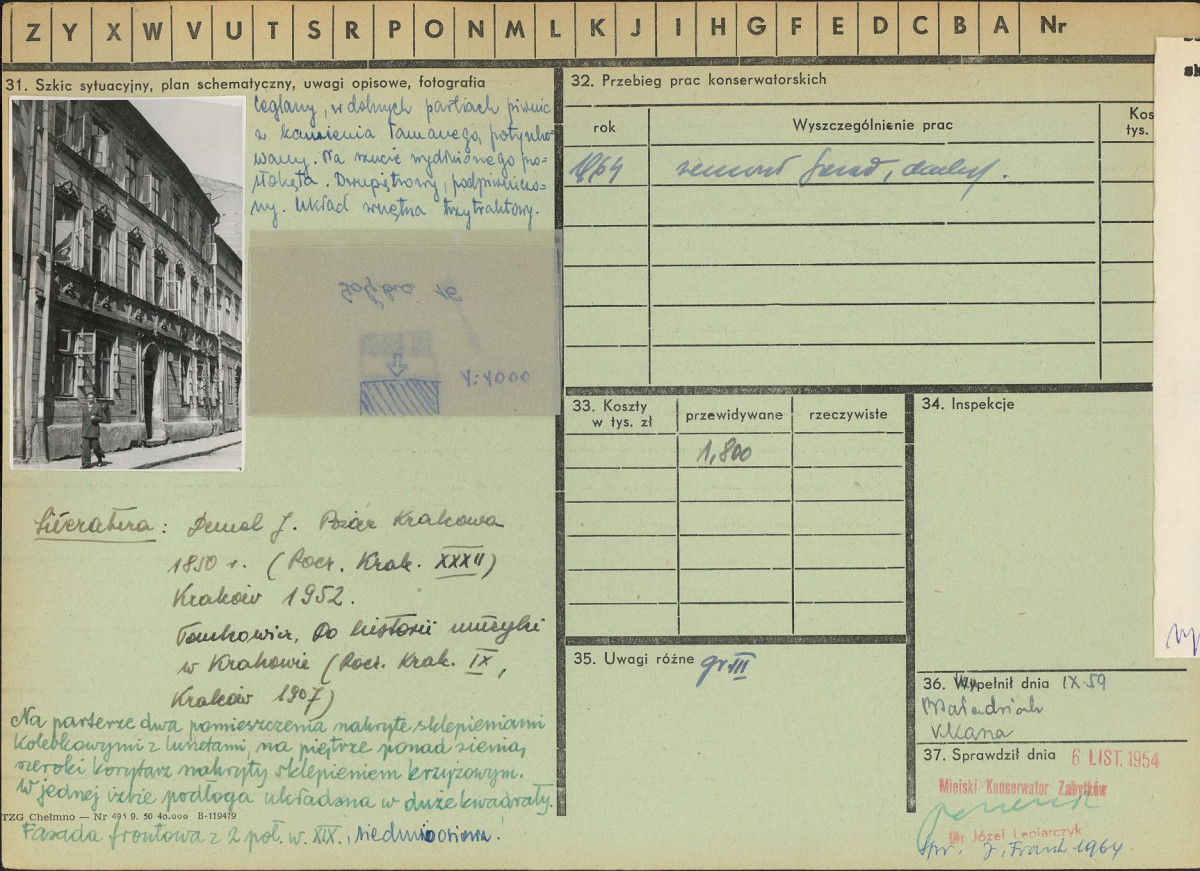 Z Y X W V U T S R P O N M L K J I H G F E D C B A Nr
31. Szkic sytuacyjny, plan schematyczny, uwagi opisowe, fotografia
ceglany, w dolnych partiach piwnic
z kamienia łamanego, potynko-
wany. Na rzucie wydłużonego pro-
stokąta. Dwupiętrowy, podpiwniczo-
ny. Układ wnętrza trzytraktowy.
16
1:1000
Literatura: Demel J. Pożar Krakowa
1850 r. (Rocz. Krak. XXXII)
Kraków 1952.
Tomkowicz, Do historii muzyki
w Krakowie (Rocz. Krak. IX,
Kraków 1907)
Na parterze dwa pomieszczenia nakryte sklepieniami
kolebkowymi z lunetami, na piętrze ponad sienią,
szeroki korytarz nakryty sklepieniem krzyżowym.
W jednej izbie podłoga układana w duże kwadraty.
TZG Chełmno — Nr 495 9. 50 40.000 B-119479
Fasada frontowa z 2 poł. w. XIX., siedmioosiowa.
32. Przebieg prac konserwatorskich
rok
Wyszczególnienie prac
Kos
tys.
1964 remont
33. Koszty
w tys. zł
przewidywane
rzeczywiste
1,800
34. Inspekcje
35. Uwagi różne gr III
36. Wypełnił dnia IX.59
37. Sprawdził dnia 6 LIST. 1954
Miejski Konserwator Zabytków
Dr Józef Lepiarczyk
Spr. J. Frank 1964